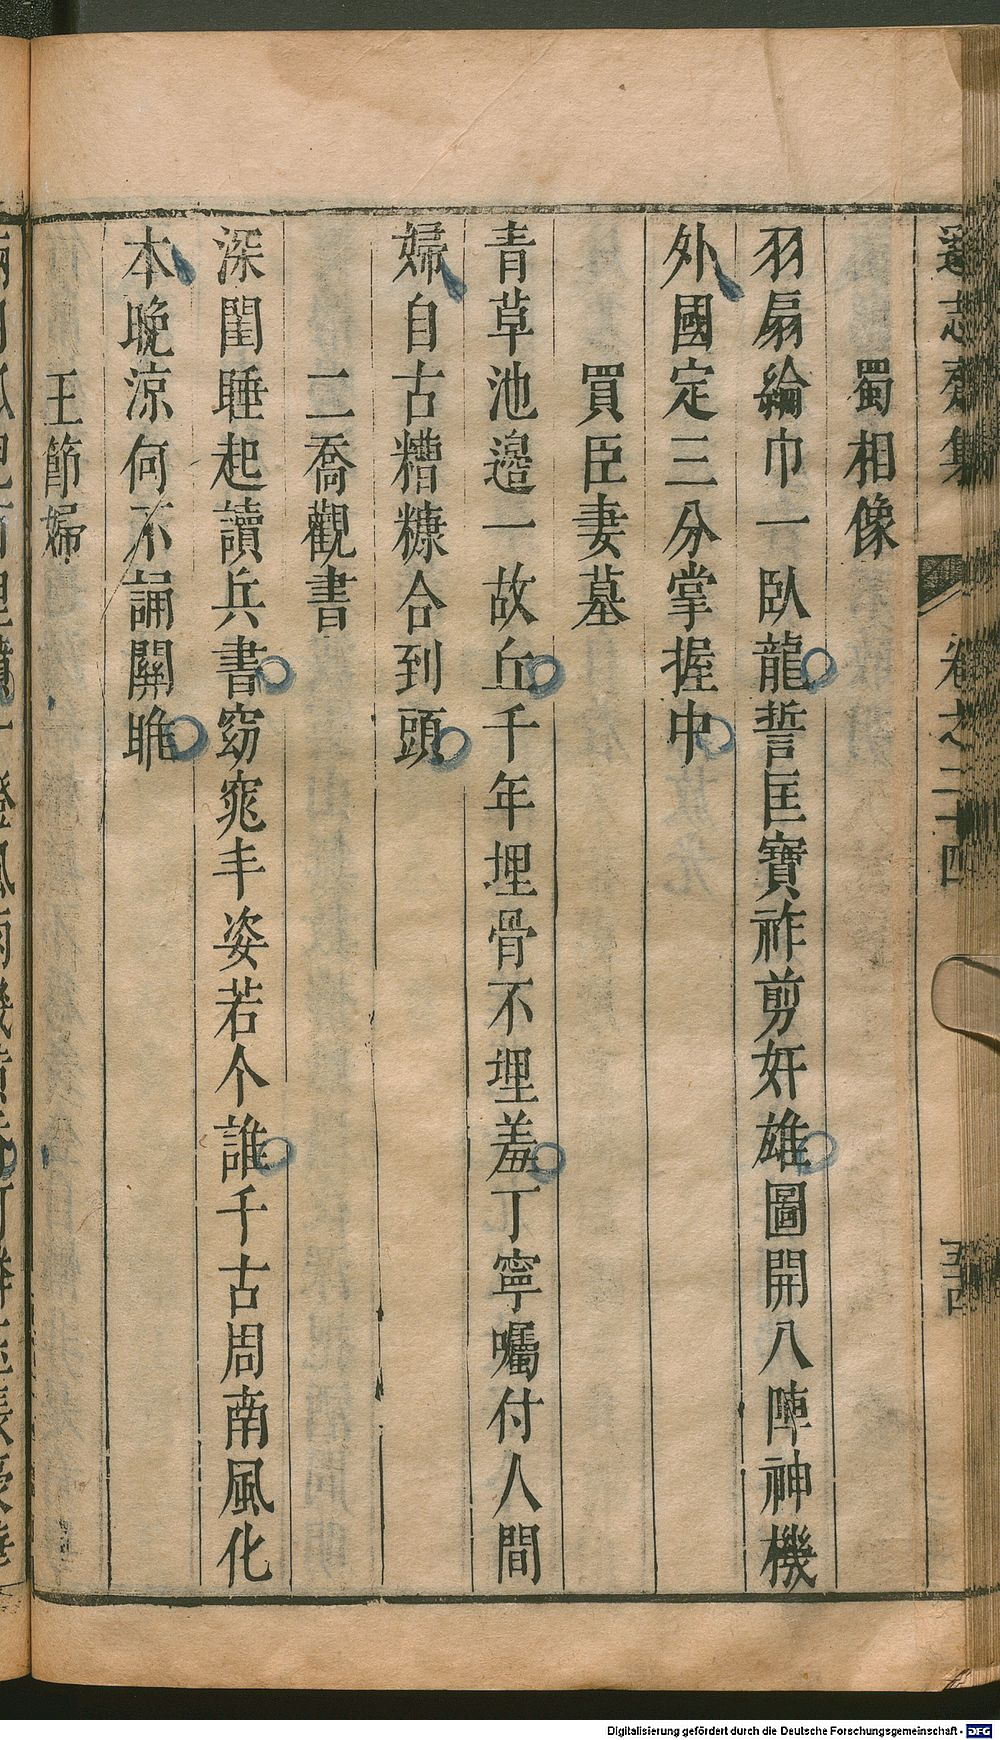 遜志齋集 卷之二十四 五四
蜀相像
羽扇綸巾一臥龍誓匡寶祚剪奸雄圖開八陣神機
外國定三分掌握中
買臣妻墓
青草池邊一故丘千年埋骨不埋羞丁寧囑付人間
婦自古糟糠合到頭
二喬觀書
深閨睡起讀兵書窈窕丰姿若个誰千古周南風化
本晚涼何不誦關雎
王節婦
Digitalisierung gefördert durch die Deutsche Forschungsgemeinschaft - DFG